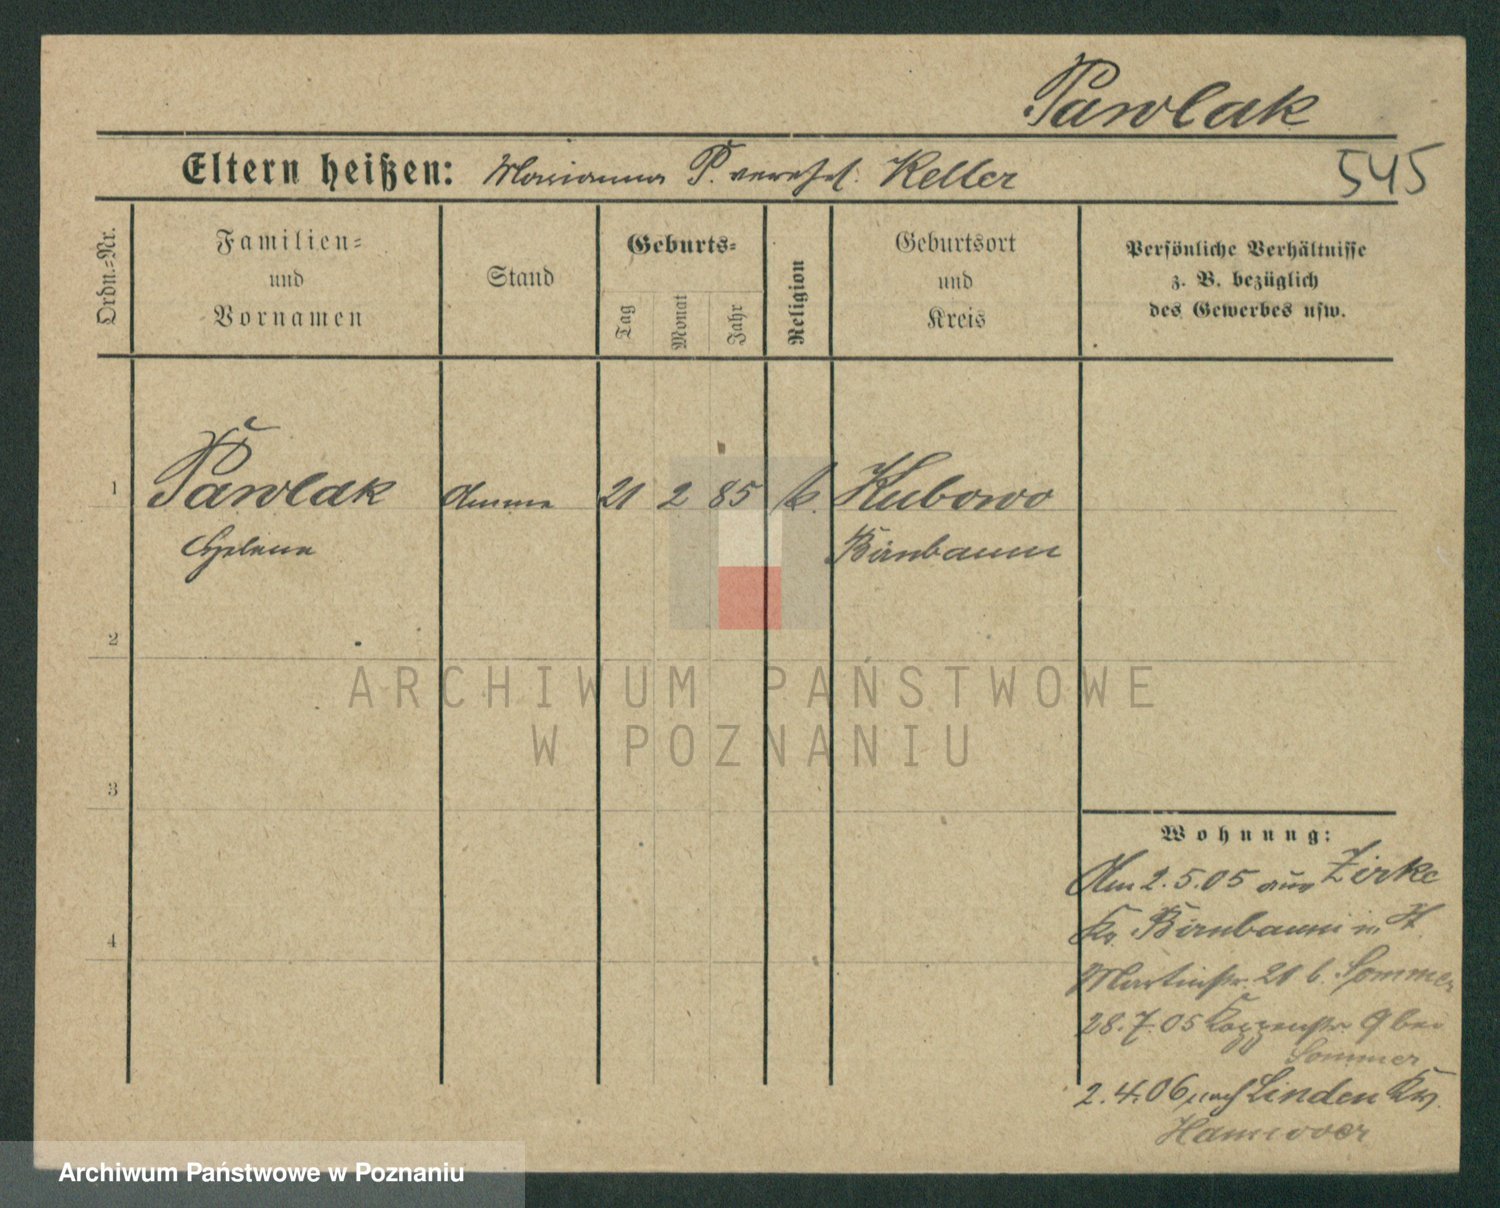 Pawlak
Eltern heißen: Marianna P. verehel. Keller
545
Ordn.-Nr.
Familien-
und
Vornamen
Stand
Geburts-
Tag
Monat
Jahr
Religion
Geburtsort
und
Kreis
Persönliche Verhältnisse
z. B. bezüglich
des Gewerbes usw.
1 Pawlak Amme 21 2 85 k. Kubowo
Helene Birnbaum
2
ARCHIWUM PAŃSTWOWE
W POZNANIU
3
Wohnung:
Am 2.5.05 aus Zirke
Kr. Birnbaum in
4
Martinstr. 21 b. Sommer
28.7.05 9 bei
Sommer
2.4.06 nach Linden Kr.
Hannover
Archiwum Państwowe w Poznaniu